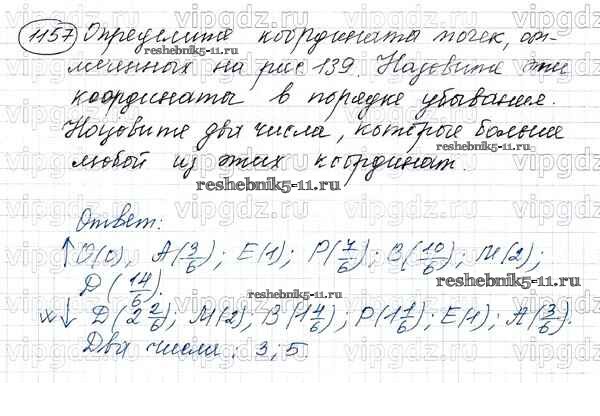 1157 Определите координаты точек, от-
меченных на рис 139. Назовите эти
координаты в порядке убывания.
Назовите два числа, которые больше
любой из этих координат.
reshebnik5-11.ru
Ответ:
↑ O(0), A(3/6); E(1); P(7/6); B(10/6); M(2);
D(14/6).
↓ D(2 2/6); M(2), B(1 4/6); P(1 1/6); E(1); A(3/6).
Два числа: 3; 5.